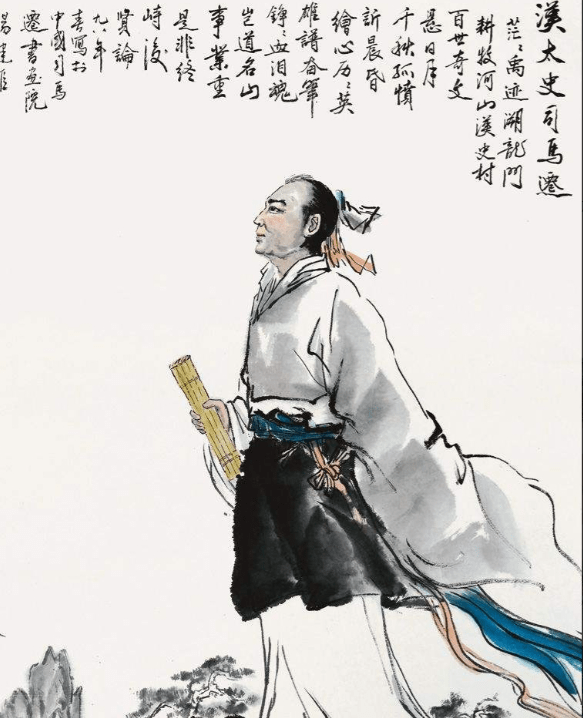 漢太史司馬遷
茫〻禹迹溯龍門
耕牧河山漢史村
百世奇文
懸日月
千秋孤憤
訴晨昏
繪心历〻英
雄譜奋筆
錚〻血泪魂
岂道名山
事業重
是非終
待後
賢論
九八年
春寫扵
中國司馬
遷書画院